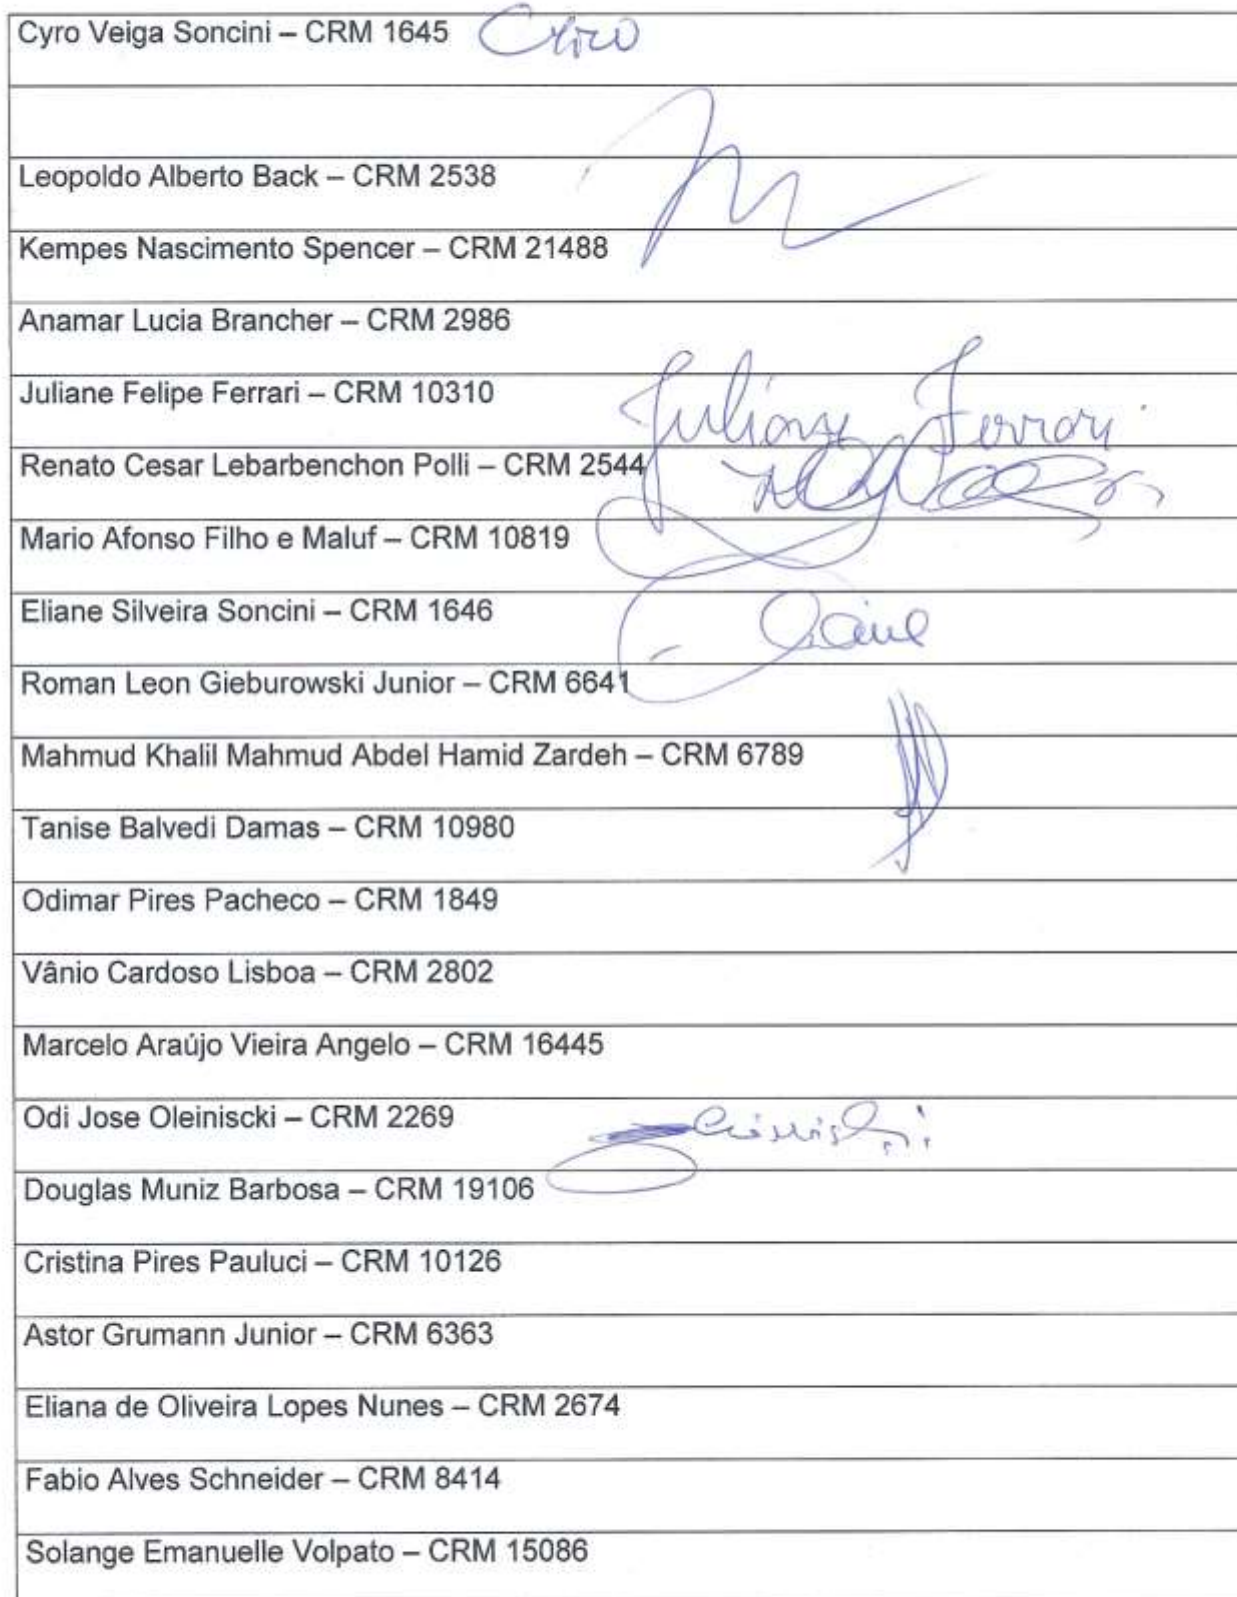 Cyro Veiga Soncini – CRM 1645 Cyro
Leopoldo Alberto Back – CRM 2538
Kempes Nascimento Spencer – CRM 21488
Anamar Lucia Brancher – CRM 2986
Juliane Felipe Ferrari – CRM 10310 Juliane Ferrari
Renato Cesar Lebarbenchon Polli – CRM 2544
Mario Afonso Filho e Maluf – CRM 10819
Eliane Silveira Soncini – CRM 1646
Roman Leon Gieburowski Junior – CRM 6641
Mahmud Khalil Mahmud Abdel Hamid Zardeh – CRM 6789
Tanise Balvedi Damas – CRM 10980
Odimar Pires Pacheco – CRM 1849
Vânio Cardoso Lisboa – CRM 2802
Marcelo Araújo Vieira Angelo – CRM 16445
Odi Jose Oleiniscki – CRM 2269
Douglas Muniz Barbosa – CRM 19106
Cristina Pires Pauluci – CRM 10126
Astor Grumann Junior – CRM 6363
Eliana de Oliveira Lopes Nunes – CRM 2674
Fabio Alves Schneider – CRM 8414
Solange Emanuelle Volpato – CRM 15086